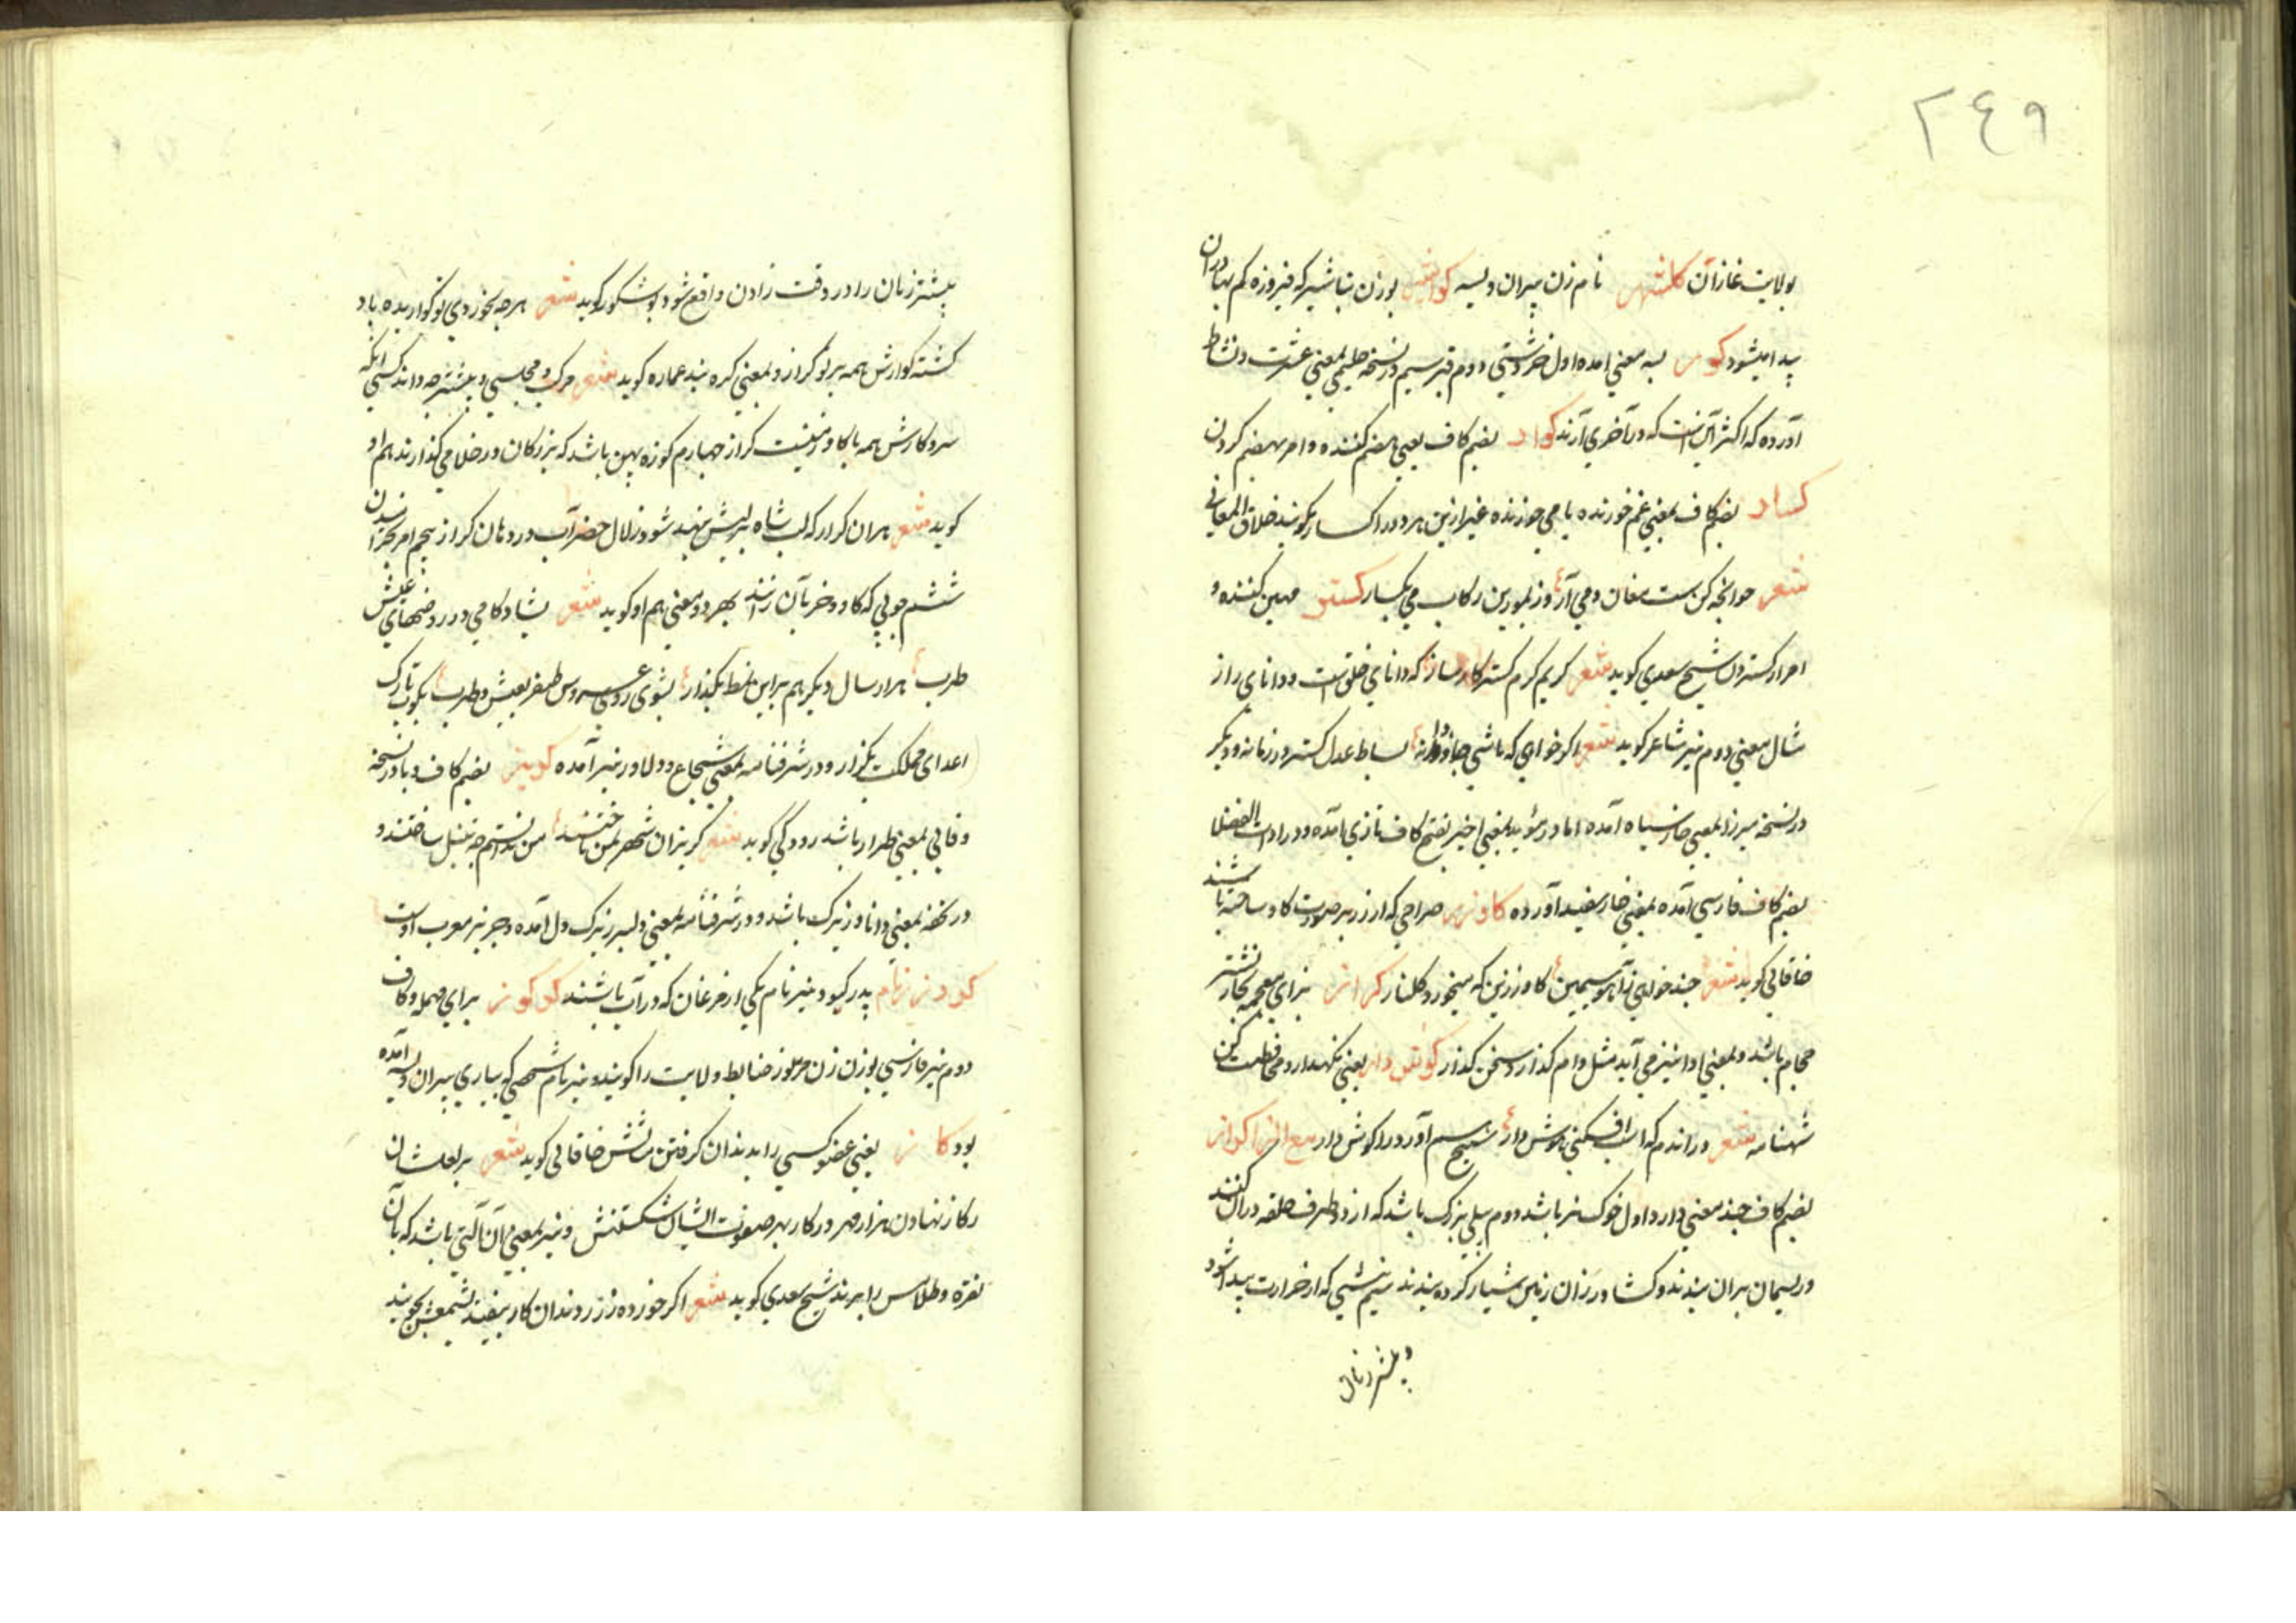 ٢٤٩
بولایت غازان کلشهر نام زن پیران ویسه کواشیر بوزن تباشیر که فیروزه کم بها دران
پیدا میشود کور بسه معنی آمده اول خر دشتی دوم قبر سیم در نسخه حلیمی بمعنی عشرت و نشاط
آورده که اکثر آنست که در آخر می آرند کوار بضم کاف یعنی هضم کننده و امر بهضم کردن
کسار بضم کاف بمعنی غم خورنده یا می خورنده غیر ازین هر دو را کسار نکویند خلاق المعانی
شعر می آر وز بلورین رکاب می بکسار کستر مهین کننده و
امر از کستردن شیخ سعدی کوید شعر کریم کرم کستر کارساز که دانای خلق است و دانای راز
مثال معنی دوم نیز شاعر کوید شعر اگر خواهی که باشی جاودانه بساط عدل کستر در زمانه و دیگر
در نسخه میرزا بمعنی خار سیاه آمده اما در مؤید بمعنی اخیر بفتح کاف تازی آمده و در ادات الفضلا
بضم کاف فارسی آمده بمعنی خار سفید آورده کاو زر صراحی که از زر بر صورت کاو ساخته باشند
خاقانی کوید شعر چند خواهی ز آهوی سیمین کاو زرین که میخورد کلنار کراز بزای معجمه نشتر
حجام باشد و بمعنی ادا نیز می آید مثل وام کذار و سخن کذار کوش دار یعنی نکهدار و محافظت کن
شهنامه شعر در اندم که اسب افکنی هوش دار آورد را کوش دار مع الزا کراز
بضم کاف چند معنی دارد اول خوک نر باشد دوم بیلی بزرک باشد که از دو طرف حلقه در ان کنند
و ریسمان بران بندند و کشاورزان زمین شیار کرده بندند سیم تبشی که از حرارت پیدا شود
و بیشتر زنان
بیشتر زنان را در وقت زادن واقع شود ابو شکور کوید شعر هرچه بخوردی تو کوارنده باد
کشته کوارش همه بر تو کراز و بمعنی کره نیز عماره کوید شعر
کراز چهارم کوزه پهن باشد که بزرکان در خلا می کذارند هم او
کوید شعر هران کراز که لب شاه بر لبش بنهد شود زلال خضر آب در دهان کراز پنجم امر بخرامیدن
ششم چوبی که کاو و خر بآن رانند بهر دو معنی هم او کوید شعر بشادکامی در روضهای عیش
طرب هزار سال دیکر هم براین نمط بکذار بشوی روی عروس ظفر بعیش و طرب بکوب تارک
اعدای مملکت بکراز و در شرفنامه بمعنی شجاع و دلاور نیز آمده کربز بضم کاف و با در نسخه
وفائی بمعنی طرار باشد رودکی کوید شعر کربزان شهر بر من تاختند من ندانستم چه تنبل ساختند و
در تحفه بمعنی دانا و زیرک باشد و در شرفنامه بمعنی دلیر و بزرک دل آمده و جربز معرب اوست
کودرز نام پدر کیو و نیز نام یکی از مرغان که در آب باشند کرکوز برای مهمله و کاف
دوم نیز فارسی بوزن زن مرموز ضابط ولایت را کویند و نیز نام شخصی که بیاری پیران ویسه آمده
بود کاز یعنی عضو کسی را بدندان کرفتن مثالش خاقانی کوید شعر بر لعلشان
ز کاز نهادن هزار مهر و نیز بمعنی آن آلتی باشد که بآن
نقره و طلا و مس را ببرند شیخ سعدی کوید شعر اگر خورده زر ز دندان کاز بیفتد بشمعش بجویند